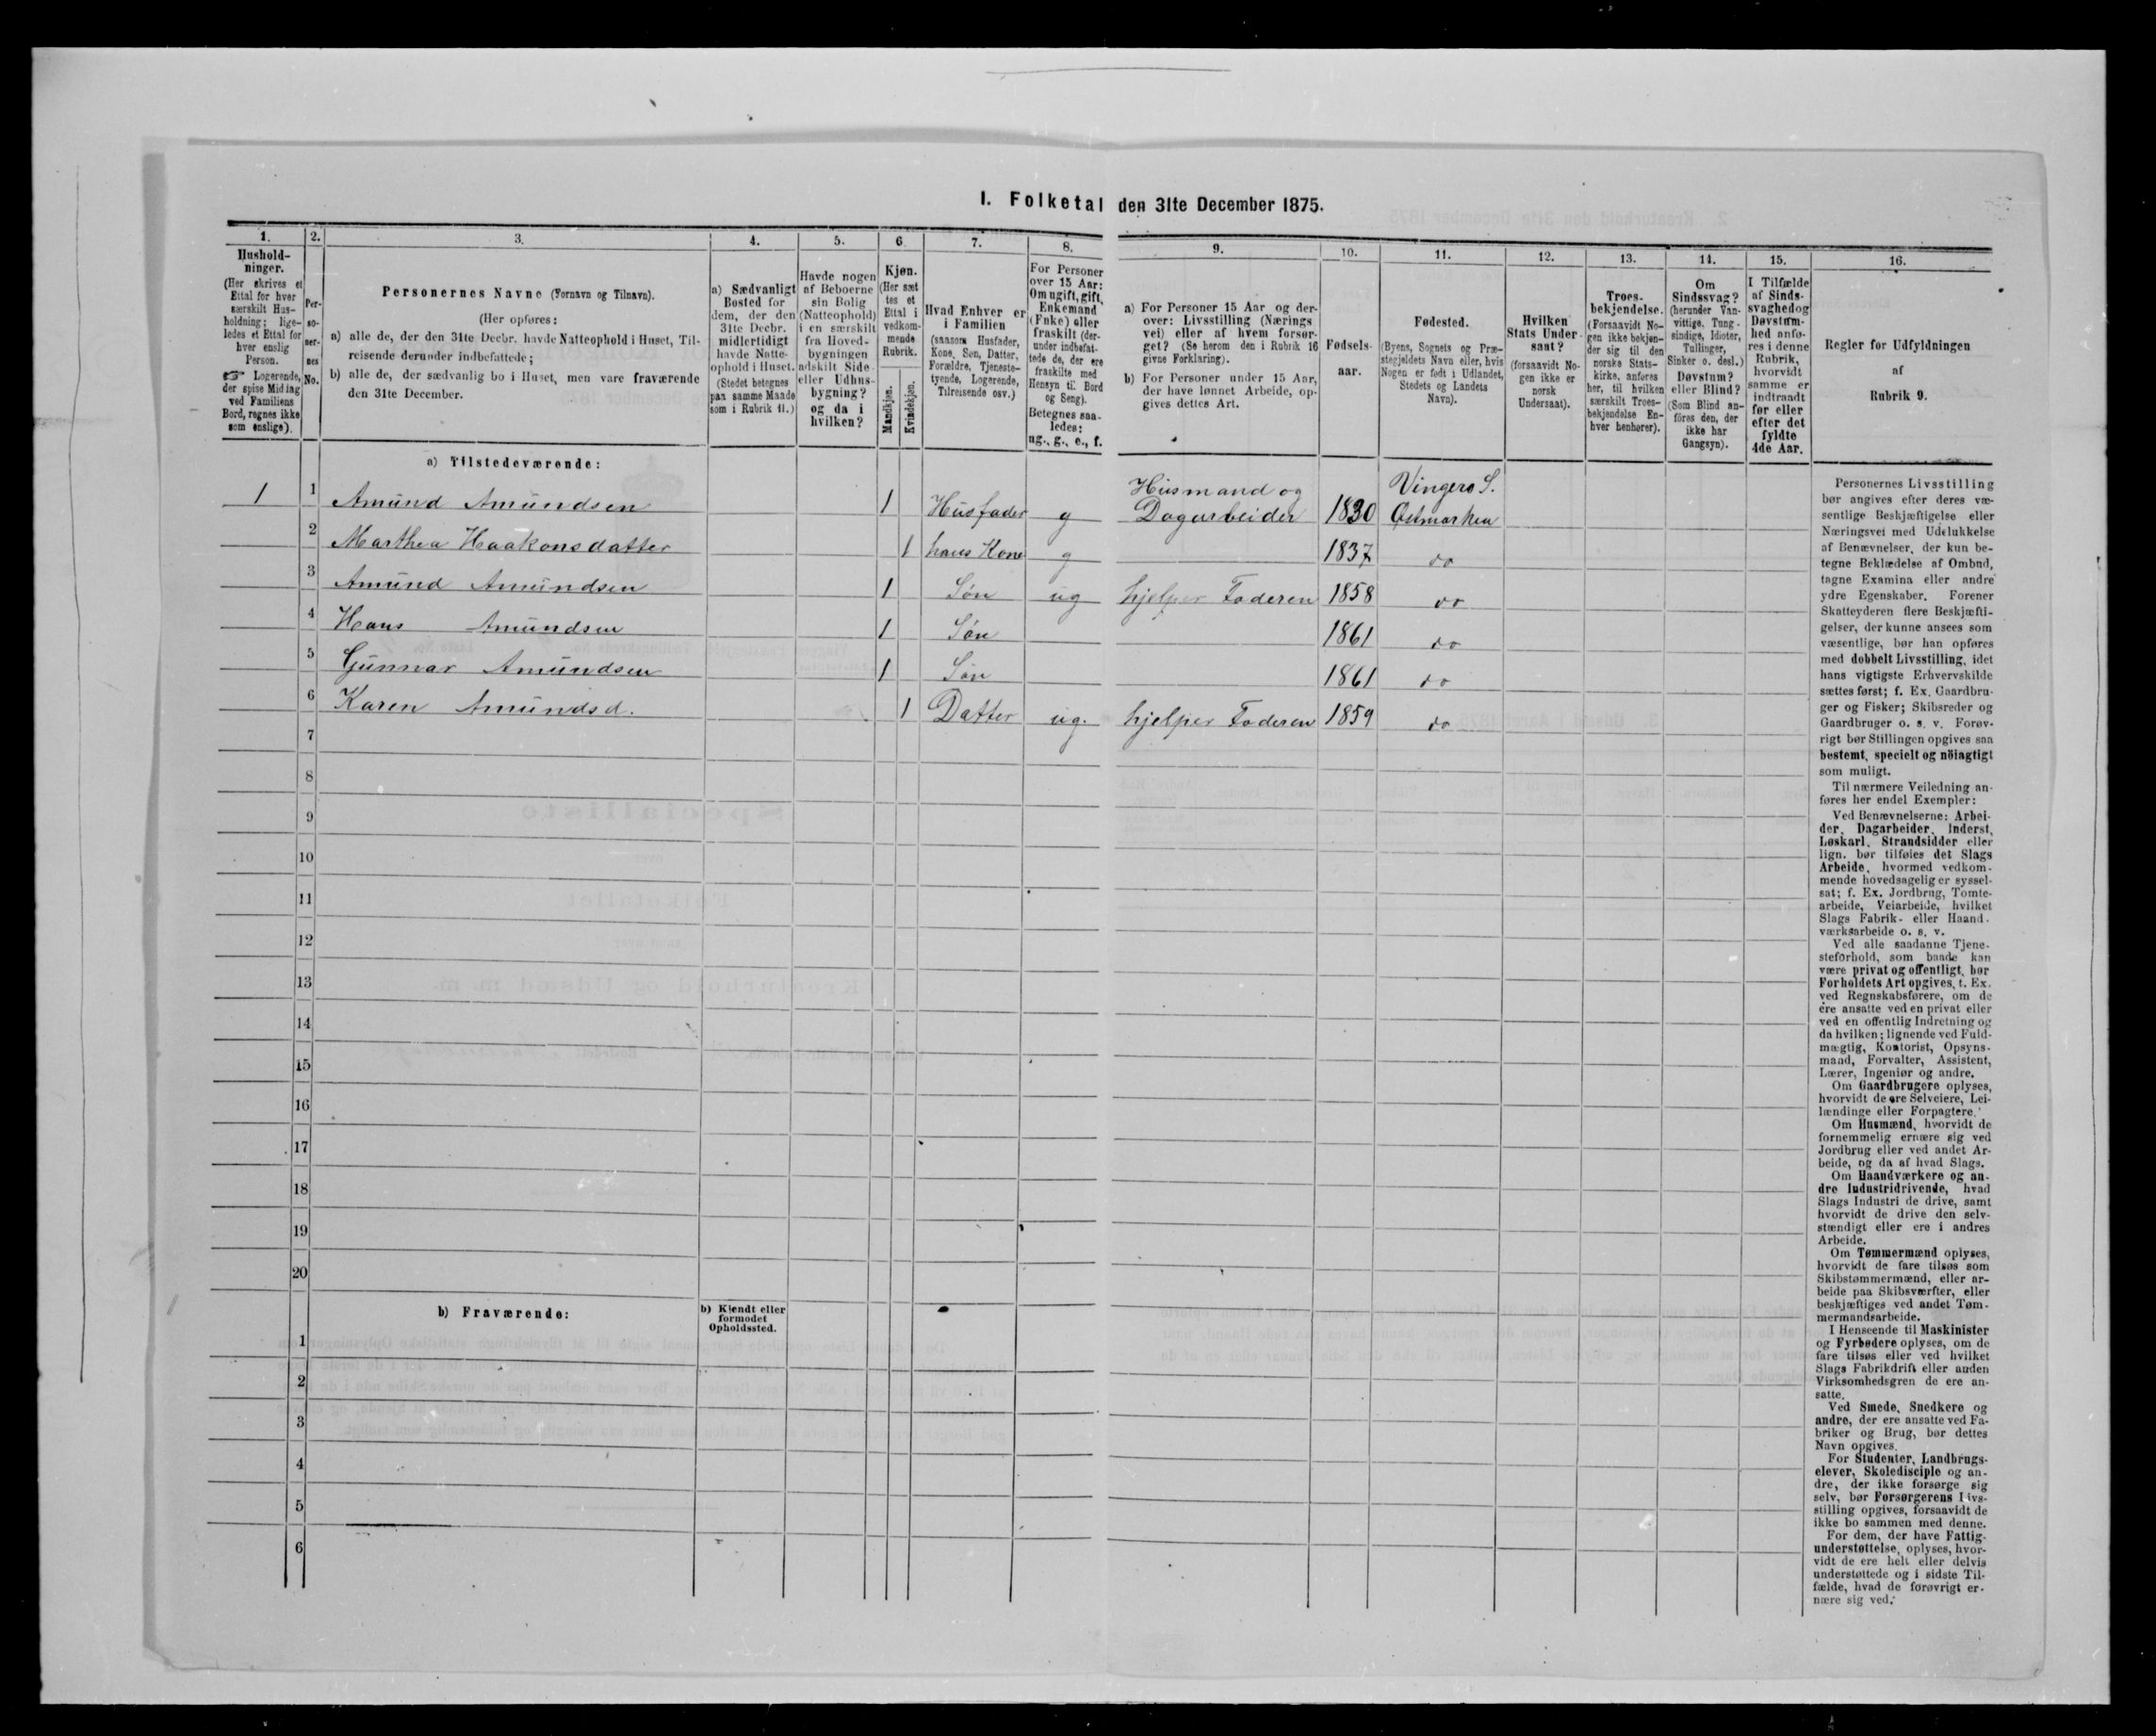 I. Folketal den 31te December 1875.
1. 2. 3. 4. 5. 6. 7. 8. 9. 10. 11. 12. 13. 14. 15. 16.
Hushold-
ninger.
(Her skrives et
Ettal for hver
særskilt Hus-
holdning; lige-
ledes et Ettal for
hver enslig
Person.
☞ Logerende,
der spise Middag
ved Familiens
Bord, regnes ikke
som enslige).
Per-
so-
ner-
nes
No.
Personernes Navne (Fornavn og Tilnavn).
(Her opføres:
a) alle de, der den 31te Decbr. havde Natteophold i Huset, Til-
reisende derunder indbefattede;
b) alle de, der sædvanlig bo i Huset, men vare fraværende
den 31te December.
a) Sædvanligt
Bosted for
dem, der den
31te Decbr.
midlertidigt
havde Natte-
ophold i Huset.
(Stedet betegnes
paa samme Maade
som i Rubrik 11.)
Havde nogen
af Beboerne
sin Bolig
(Natteophold)
i en særskilt
fra Hoved-
bygningen
adskilt Side-
eller Udhus-
bygning?
og da i
hvilken?
Kjøn.
(Her sæt
tes et
Ettal i
vedkom-
mende
Rubrik.
Mandkjøn.
Kvindekjøn.
Hvad Enhver er
i Familien
(saasom Husfader,
Kone, Søn, Datter,
Forældre, Tjeneste-
tyende, Logerende,
Tilreisende osv.)
For Personer
over 15 Aar:
Om ugift, gift,
Enkemand
(Enke) eller
fraskilt (der-
under indbefat-
tede de, der ere
fraskilte med
Hensyn til Bord
og Seng).
Betegnes saa-
ledes:
ug., g., e., f.
a) For Personer 15 Aar og der-
over: Livsstilling (Nærings
vei) eller af hvem forsør-
get? (Se herom den i Rubrik 16
givne Forklaring).
b) For Personer under 15 Aar,
der have lønnet Arbeide, op-
gives dettes Art.
Fødsels-
aar.
Fødested.
(Byens, Sognets og Præ-
stegjeldets Navn eller, hvis
Nogen er født i Udlandet,
Stedets og Landets
Navn).
Hvilken
Stats Under-
saat?
(forsaavidt No-
gen ikke er
norsk
Undersaat).
Troes-
bekjendelse.
(Forsaavidt No-
gen ikke bekjen-
der sig til den
norske Stats-
kirke, anføres
her, til hvilken
særskilt Troes-
bekjendelse En-
hver henhører).
Om
Sindssvag?
(herunder Van-
vittige, Tung-
sindige, Idioter,
Tullinger,
Sinker o. desl.)
Døvstum?
eller Blind?
(Som Blind an-
føres den, der
ikke har
Gangsyn).
I Tilfælde
af Sinds-
svaghed og
Døvstum-
hed anfø-
res i denne
Rubrik,
hvorvidt
samme er
indtraadt
før eller
efter det
fyldte
4de Aar.
Regler for Udfyldningen
af
Rubrik 9.
a) Tilstedeværende:
1 1 Amund Amundsen 1 Husfader g Husmand og Dagarbeider 1830 Vingers S. Østmarken
2 Marthea Haakonsdatter 1 hans Kone g 1837 do
3 Amund Amundsen 1 Søn ug hjelper Faderen 1858 do
4 Hans Amundsen 1 Søn 1861 do
5 Gunnar Amundsen 1 Søn 1861 do
6 Karen Amundsd. 1 Datter ug. hjelper Faderen 1859 do
7
8
9
10
11
12
13
14
15
16
17
18
19
20
b) Fraværende:
b) Kjendt eller
formodet
Opholdssted.
1
2
3
4
5
6
Personernes Livsstilling
bør angives efter deres væ-
sentlige Beskjæftigelse eller
Næringsvei med Udelukkelse
af Benævnelser, der kun be-
tegne Beklædelse af Ombud,
tagne Examina eller andre
ydre Egenskaber. Forener
Skatteyderen flere Beskjæfti-
gelser, der kunne ansees som
væsentlige, bør han opføres
med dobbelt Livsstilling, idet
hans vigtigste Erhvervskilde
sættes først; f. Ex. Gaardbru-
ger og Fisker; Skibsreder og
Gaardbruger o. s. v. Forøv-
rigt bør Stillingen opgives saa
bestemt, specielt og nöiagtigt
som muligt.
Til nærmere Veiledning an-
føres her endel Exempler:
Ved Benævnelserne: Arbei-
der, Dagarbeider, Inderst,
Løskarl, Strandsidder eller
lign. bør tilføies det Slags
Arbeide, hvormed vedkom-
mende hovedsagelig er syssel-
sat; f. Ex. Jordbrug, Tomte-
arbeide, Veiarbeide, hvilket
Slags Fabrik- eller Haand-
værksarbeide o. s. v.
Ved alle saadanne Tjene-
steforhold, som baade kan
være privat og offentligt, bør
Forholdets Art opgives, t. Ex.
ved Regnskabsførere, om de
ere ansatte ved en privat eller
ved en offentlig Indretning og
da hvilken; lignende ved Fuld-
mægtig, Kontorist, Opsyns-
mand, Forvalter, Assistent,
Lærer, Ingeniør og andre.
Om Gaardbrugere oplyses,
hvorvidt de ere Selveiere, Lei-
lændinge eller Forpagtere.
Om Husmænd, hvorvidt de
fornemmelig ernære sig ved
Jordbrug eller ved andet Ar-
beide, og da af hvad Slags.
Om Haandværkere og an-
dre Industridrivende, hvad
Slags Industri de drive, samt
hvorvidt de drive den selv-
stændigt eller ere i andres
Arbeide.
Om Tømmermænd oplyses,
hvorvidt de fare tilsøs som
Skibstømmermænd, eller ar-
beide paa Skibsværfter, eller
beskjæftiges ved andet Tøm-
mermandsarbeide.
I Henseende til Maskinister
og Fyrbødere oplyses, om de
fare tilsøs eller ved hvilket
Slags Fabrikdrift eller anden
Virksomhedsgren de ere an-
satte.
Ved Smede, Snedkere og
andre, der ere ansatte ved Fa-
briker og Brug, bør dettes
Navn opgives.
For Studenter, Landbrugs-
elever, Skoledisciple og an-
dre, der ikke forsørge sig
selv, bør Forsørgerens Livs-
stilling opgives, forsaavidt de
ikke bo sammen med denne.
For dem, der have Fattig-
understøttelse, oplyses, hvor-
vidt de ere helt eller delvis
understøttede og i sidste Til-
fælde, hvad de forøvrigt er-
nære sig ved.